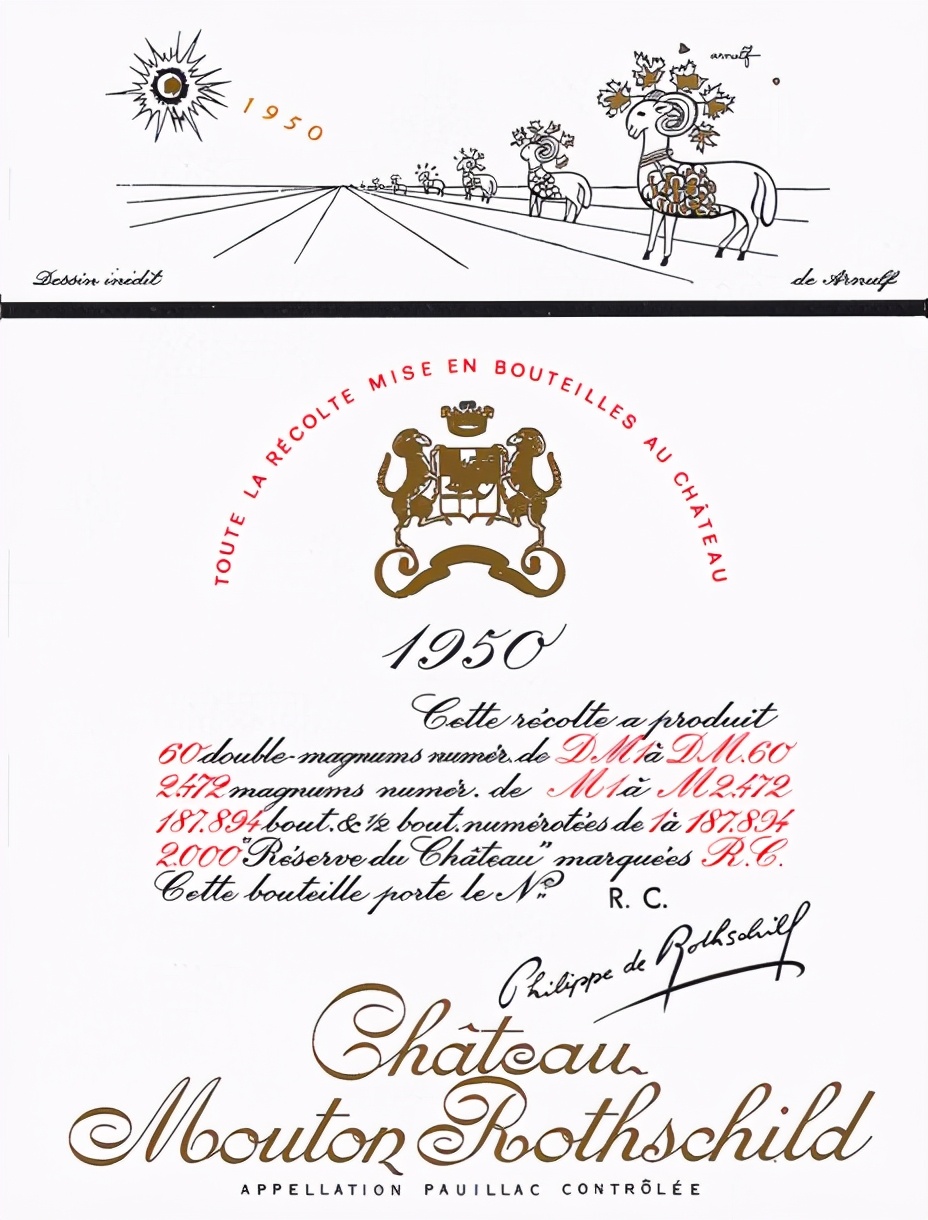 arnulf
1950
Dessin inédit
de Arnulf
TOUTE LA RÉCOLTE MISE EN BOUTEILLES AU CHÂTEAU
1950
Cette récolte a produit
60 double-magnums numér. de DM1 à DM.60
2.472 magnums numér. de M1 à M2.472
187.894 bout. & ½ bout. numérotées de 1 à 187.894
2.000 "Réserve du Château" marquées R.C.
Cette bouteille porte le Nº R. C.
Philippe de Rothschild
Château
Mouton Rothschild
APPELLATION PAUILLAC CONTRÔLÉE